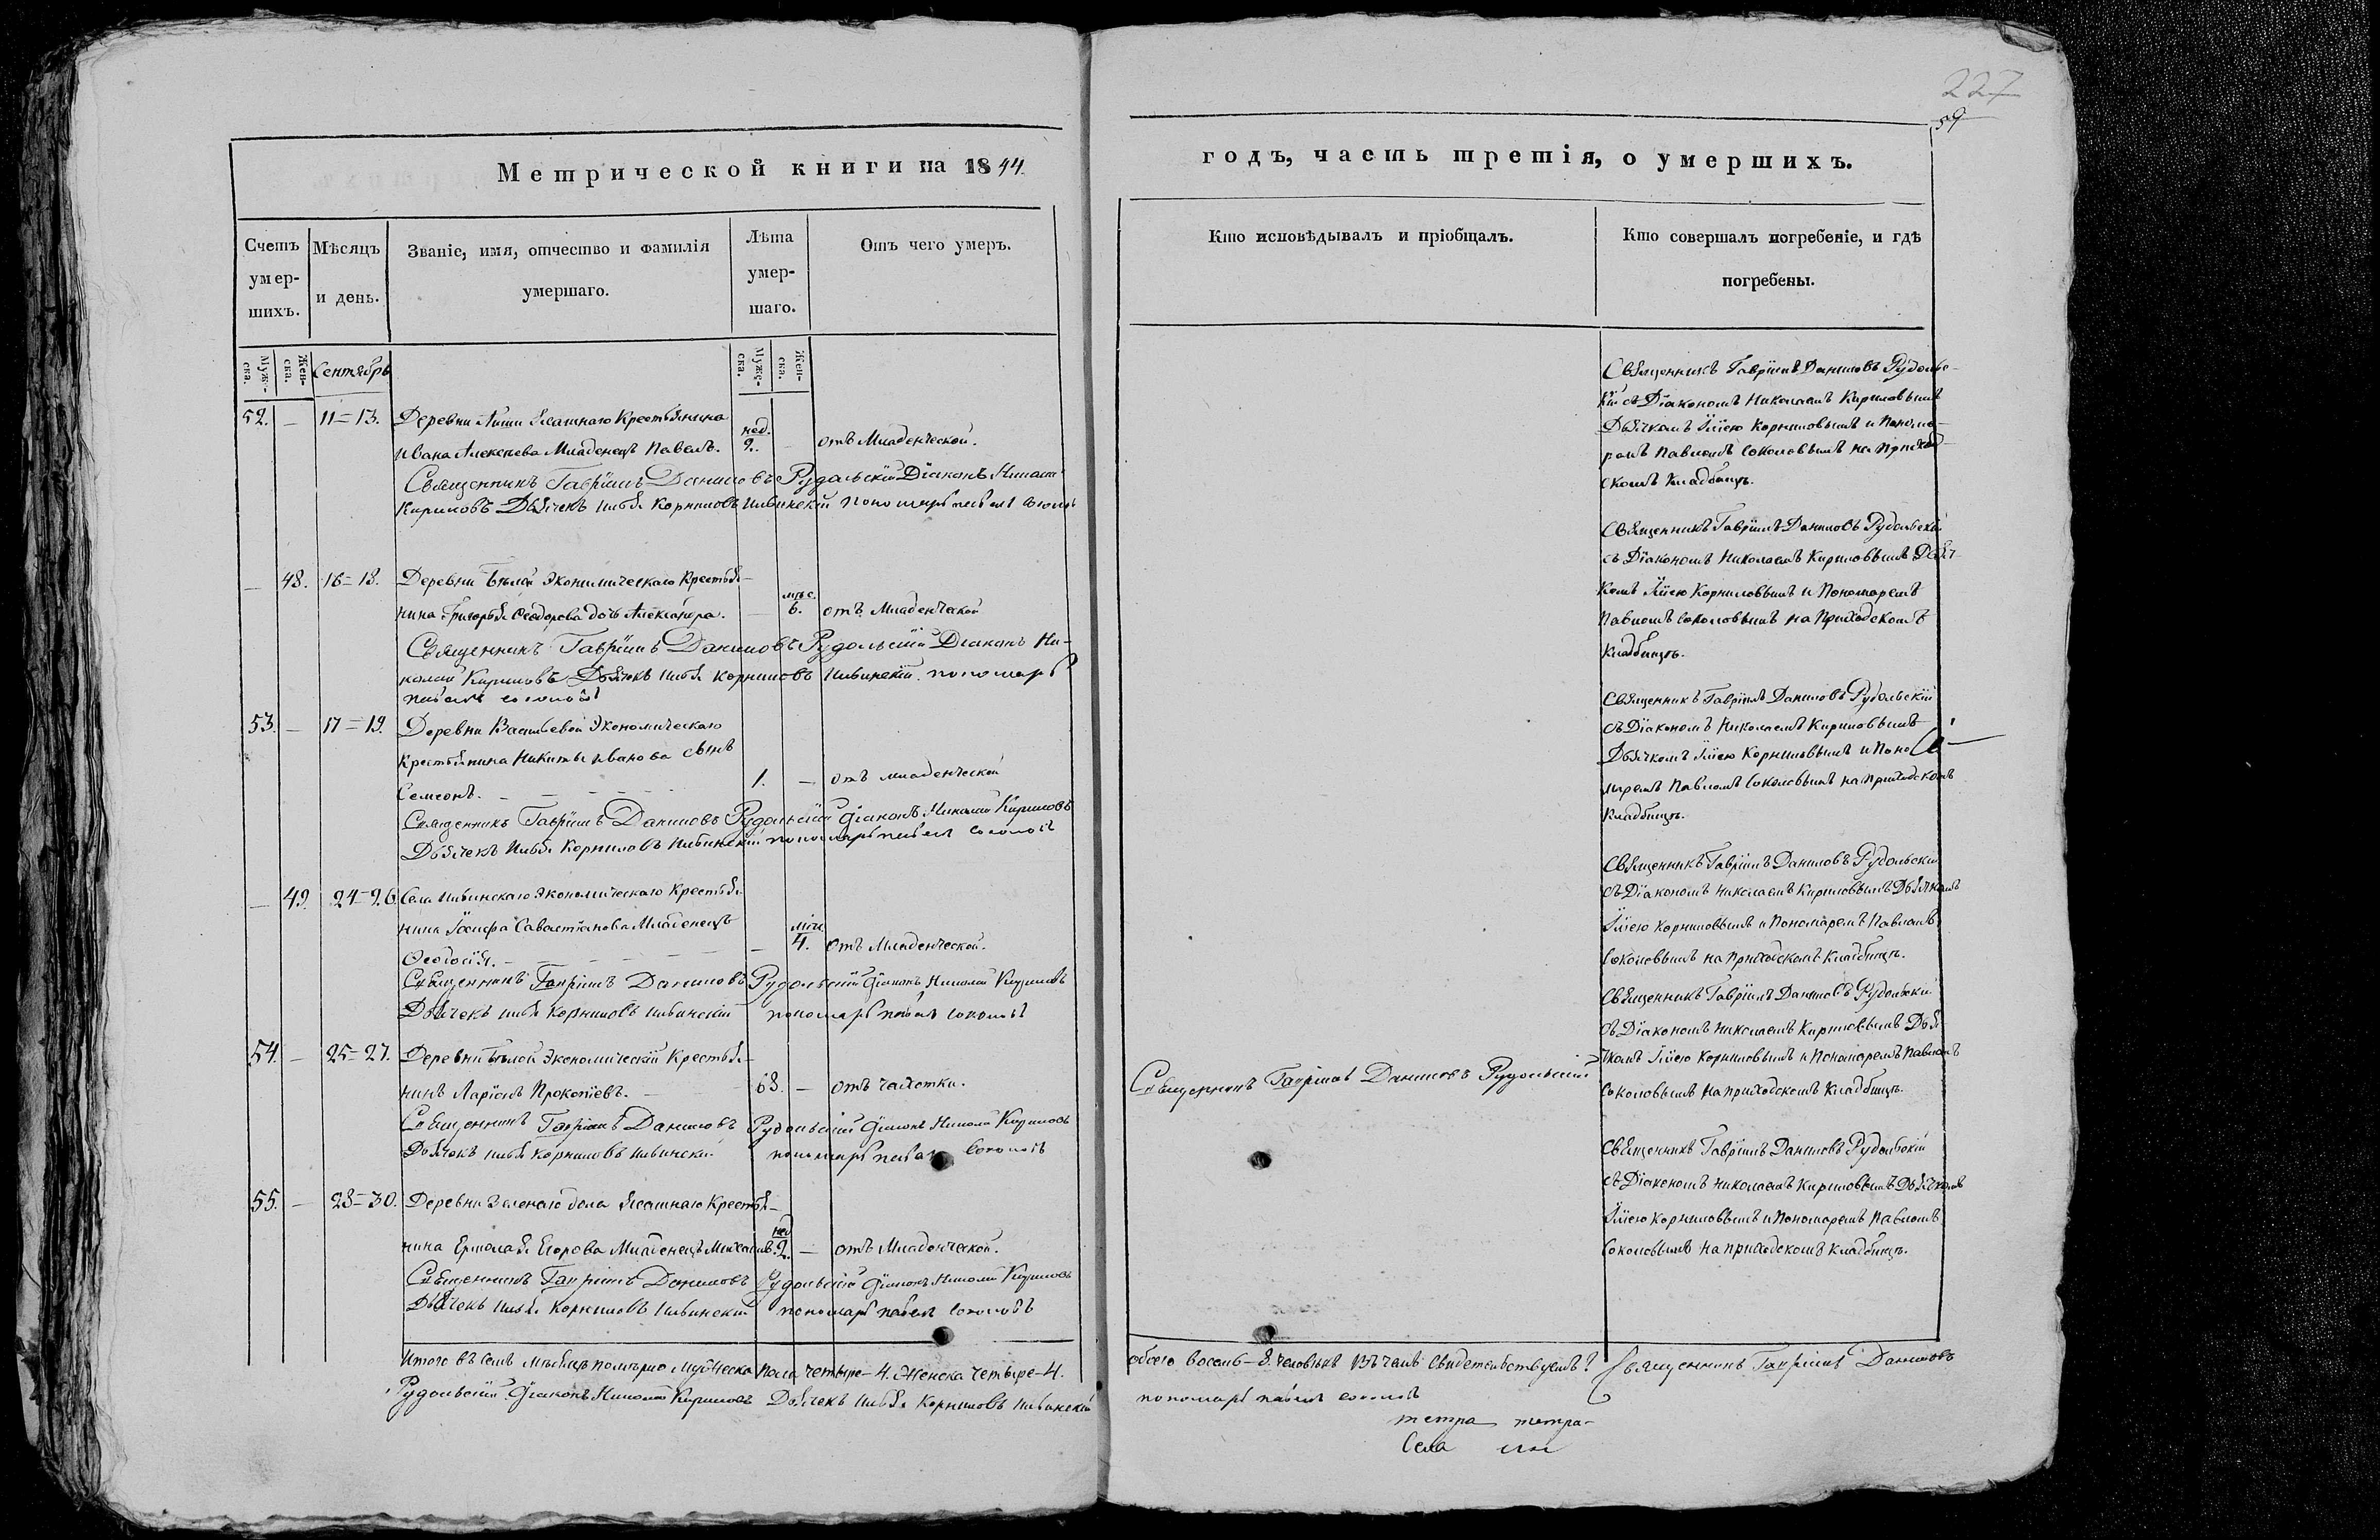 227
59
Метрической книги на 1844.
годъ, часть третія, о умершихъ.
Счетъ умер-шихъ.
Мѣсяцъ и день.
Званіе, имя, отчество и фамилія умершаго.
Лѣта умер-шаго.
Отъ чего умеръ.
Кто исповѣдывалъ и пріобщалъ.
Кто совершалъ погребеніе, и гдѣ погребены.
Муже-ска.
Жен-ска.
Сентябрь
Муже-ска.
Жен-ска.
52. — 11=13. Деревни Ясашнаго Крестьянина
Ивана Алексѣева Младенецъ Павелъ. нед. 2. — отъ Младенческой.
Священникъ Гавріилъ Даниловъ Рудольскій Діаконъ Николай
Кириловъ Дьячекъ Илья Корниловъ Ильинскій пономарь Павелъ Соколовъ
Священникъ Гавріилъ Даниловъ Рудольс-
кій съ Діакономъ Николаемъ Кириловымъ
Дьячкомъ Ильею Корниловымъ и Понома-
ремъ Павломъ Соколовымъ на Приход-
скомъ Кладбищѣ.
— 48. 16=18. Деревни Бѣлой Экономическаго Крестья-
нина Григорья Ѳеодорова дочь Александра. — мѣс. 6. отъ Младенческой
Священникъ Гавріилъ Даниловъ Рудольскій Діаконъ Ни-
колай Кириловъ Дьячекъ Илья Корниловъ Ильинскій пономарь
Павелъ Соколовъ
Священникъ Гавріилъ Даниловъ Рудольскій
съ Діакономъ Николаемъ Кириловымъ Дьяч-
комъ Ильею Корниловымъ и Пономаремъ
Павломъ Соколовымъ на Приходскомъ
Кладбищѣ.
53. — 17=19. Деревни Васильевой Экономическаго
Крестьянина Никиты Иванова сынъ
Семеонъ. 1. — отъ младенческой
Священникъ Гавріилъ Даниловъ Рудольскій Діаконъ Николай Кириловъ
Дьячекъ Илья Корниловъ Ильинскій пономарь Павелъ Соколовъ
Священникъ Гавріилъ Даниловъ Рудольскій
съ Діакономъ Николаемъ Кириловымъ
Дьячкомъ Ильею Корниловымъ и Поно
маремъ Павломъ Соколовымъ на Приходскомъ
Кладбищѣ.
— 49. 24=26. Села Ильинскаго Экономическаго Крестья
нина Савастіанова Младенецъ
Ѳеодосія. — мѣс. 4. отъ Младенческой.
Священникъ Гавріилъ Даниловъ Рудольскій Діаконъ Николай Кириловъ
Дьячекъ Илья Корниловъ Ильинскій пономарь Павелъ Соколовъ
Священникъ Гавріилъ Даниловъ Рудольскій
съ Діакономъ Николаемъ Кириловымъ Дьячкомъ
Ильею Корниловымъ и Пономаремъ Павломъ
Соколовымъ на приходскомъ Кладбищѣ.
54. — 25=27. Деревни Бѣлой Экономическій Крестья-
нинъ Ларіонъ Прокопіевъ. 68. — отъ чахотки.
Священникъ Гавріилъ Даниловъ Рудольскій Діаконъ Николай Кириловъ
Дьячекъ Илья Корниловъ Ильинскій пономарь Павелъ Соколовъ
Священникъ Гавріилъ Даниловъ Рудольскій
Священникъ Гавріилъ Даниловъ Рудольскій
съ Діакономъ Николаемъ Кириловымъ Дья
чкомъ Ильею Корниловымъ и Пономаремъ Павломъ
Соколовымъ на приходскомъ Кладбищѣ.
55. — 28=30. Деревни Зеленаго дола Ясашнаго Крестья-
нина Ермолая Егорова Младенецъ Михаилъ. нед 2. — отъ Младенческой.
Священникъ Гавріилъ Даниловъ Рудольскій Діаконъ Николай Кириловъ
Дьячекъ Илья Корниловъ Ильинскій пономарь Павелъ Соколовъ
Священникъ Гавріилъ Даниловъ Рудольскій
съ Діакономъ Николаемъ Кириловымъ Дьячкомъ
Ильею Корниловымъ и Пономаремъ Павломъ
Соколовымъ на приходскомъ Кладбищѣ.
Итого въ семъ Мѣсяцѣ померло Мужеска пола четыре — 4. Женска четыре — 4.
обоего восемь — 8. человѣкъ въ чемъ свидетельствуемъ: Священникъ Гавріилъ Даниловъ
Рудольскій Діаконъ Николай Кириловъ Дьячекъ Илья Корниловъ Ильинскій
пономарь Павелъ Соколовъ
тетра тетра-
Села